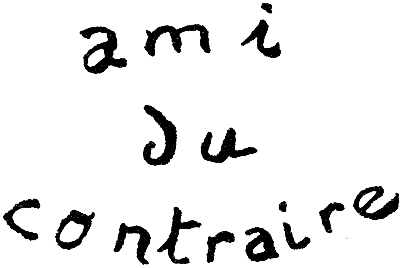 ami
du
contraire